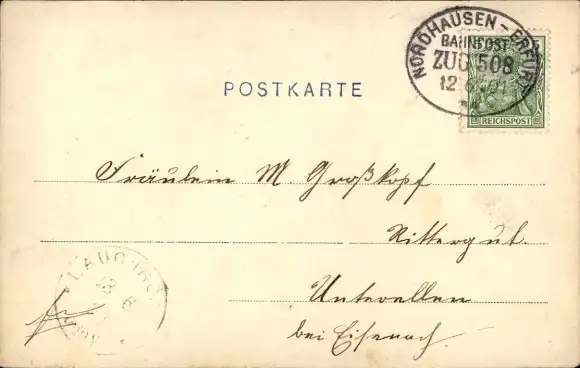 NORDHAUSEN - ERFURT
BAHNPOST
ZUG 508
12
REICHSPOST
POSTKARTE
Fräulein M. Großkopf
Rittergut.
Unterellen
bei Eisenach.